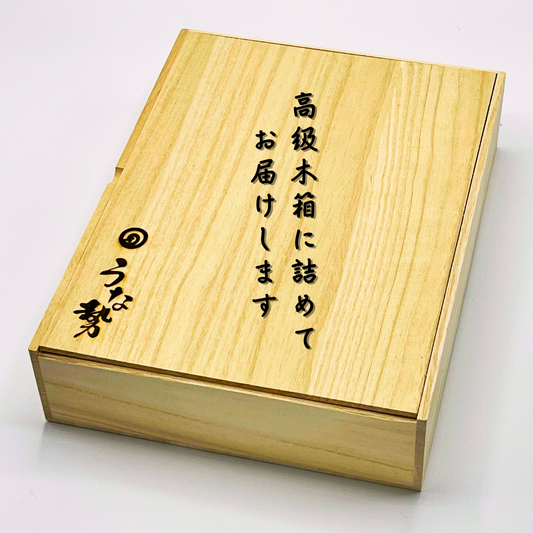 高級木箱に詰めて
お届けします
うな勢